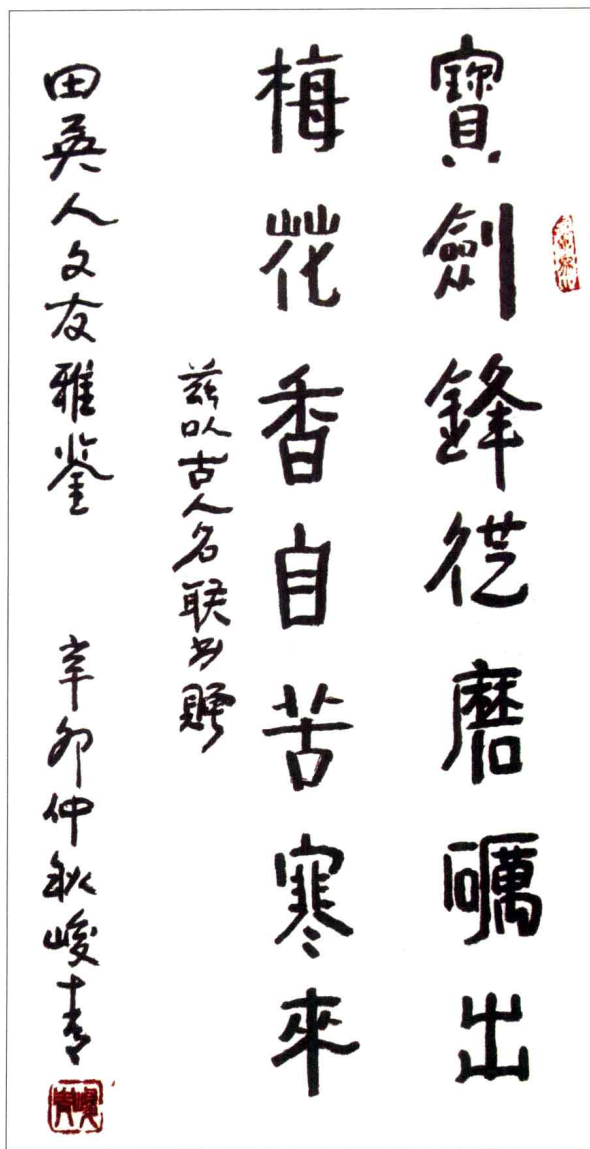 寶劍鋒從磨礪出
梅花香自苦寒來
兹以古人名联书赠
田英人文友雅鉴
辛卯仲秋峻青
峻青